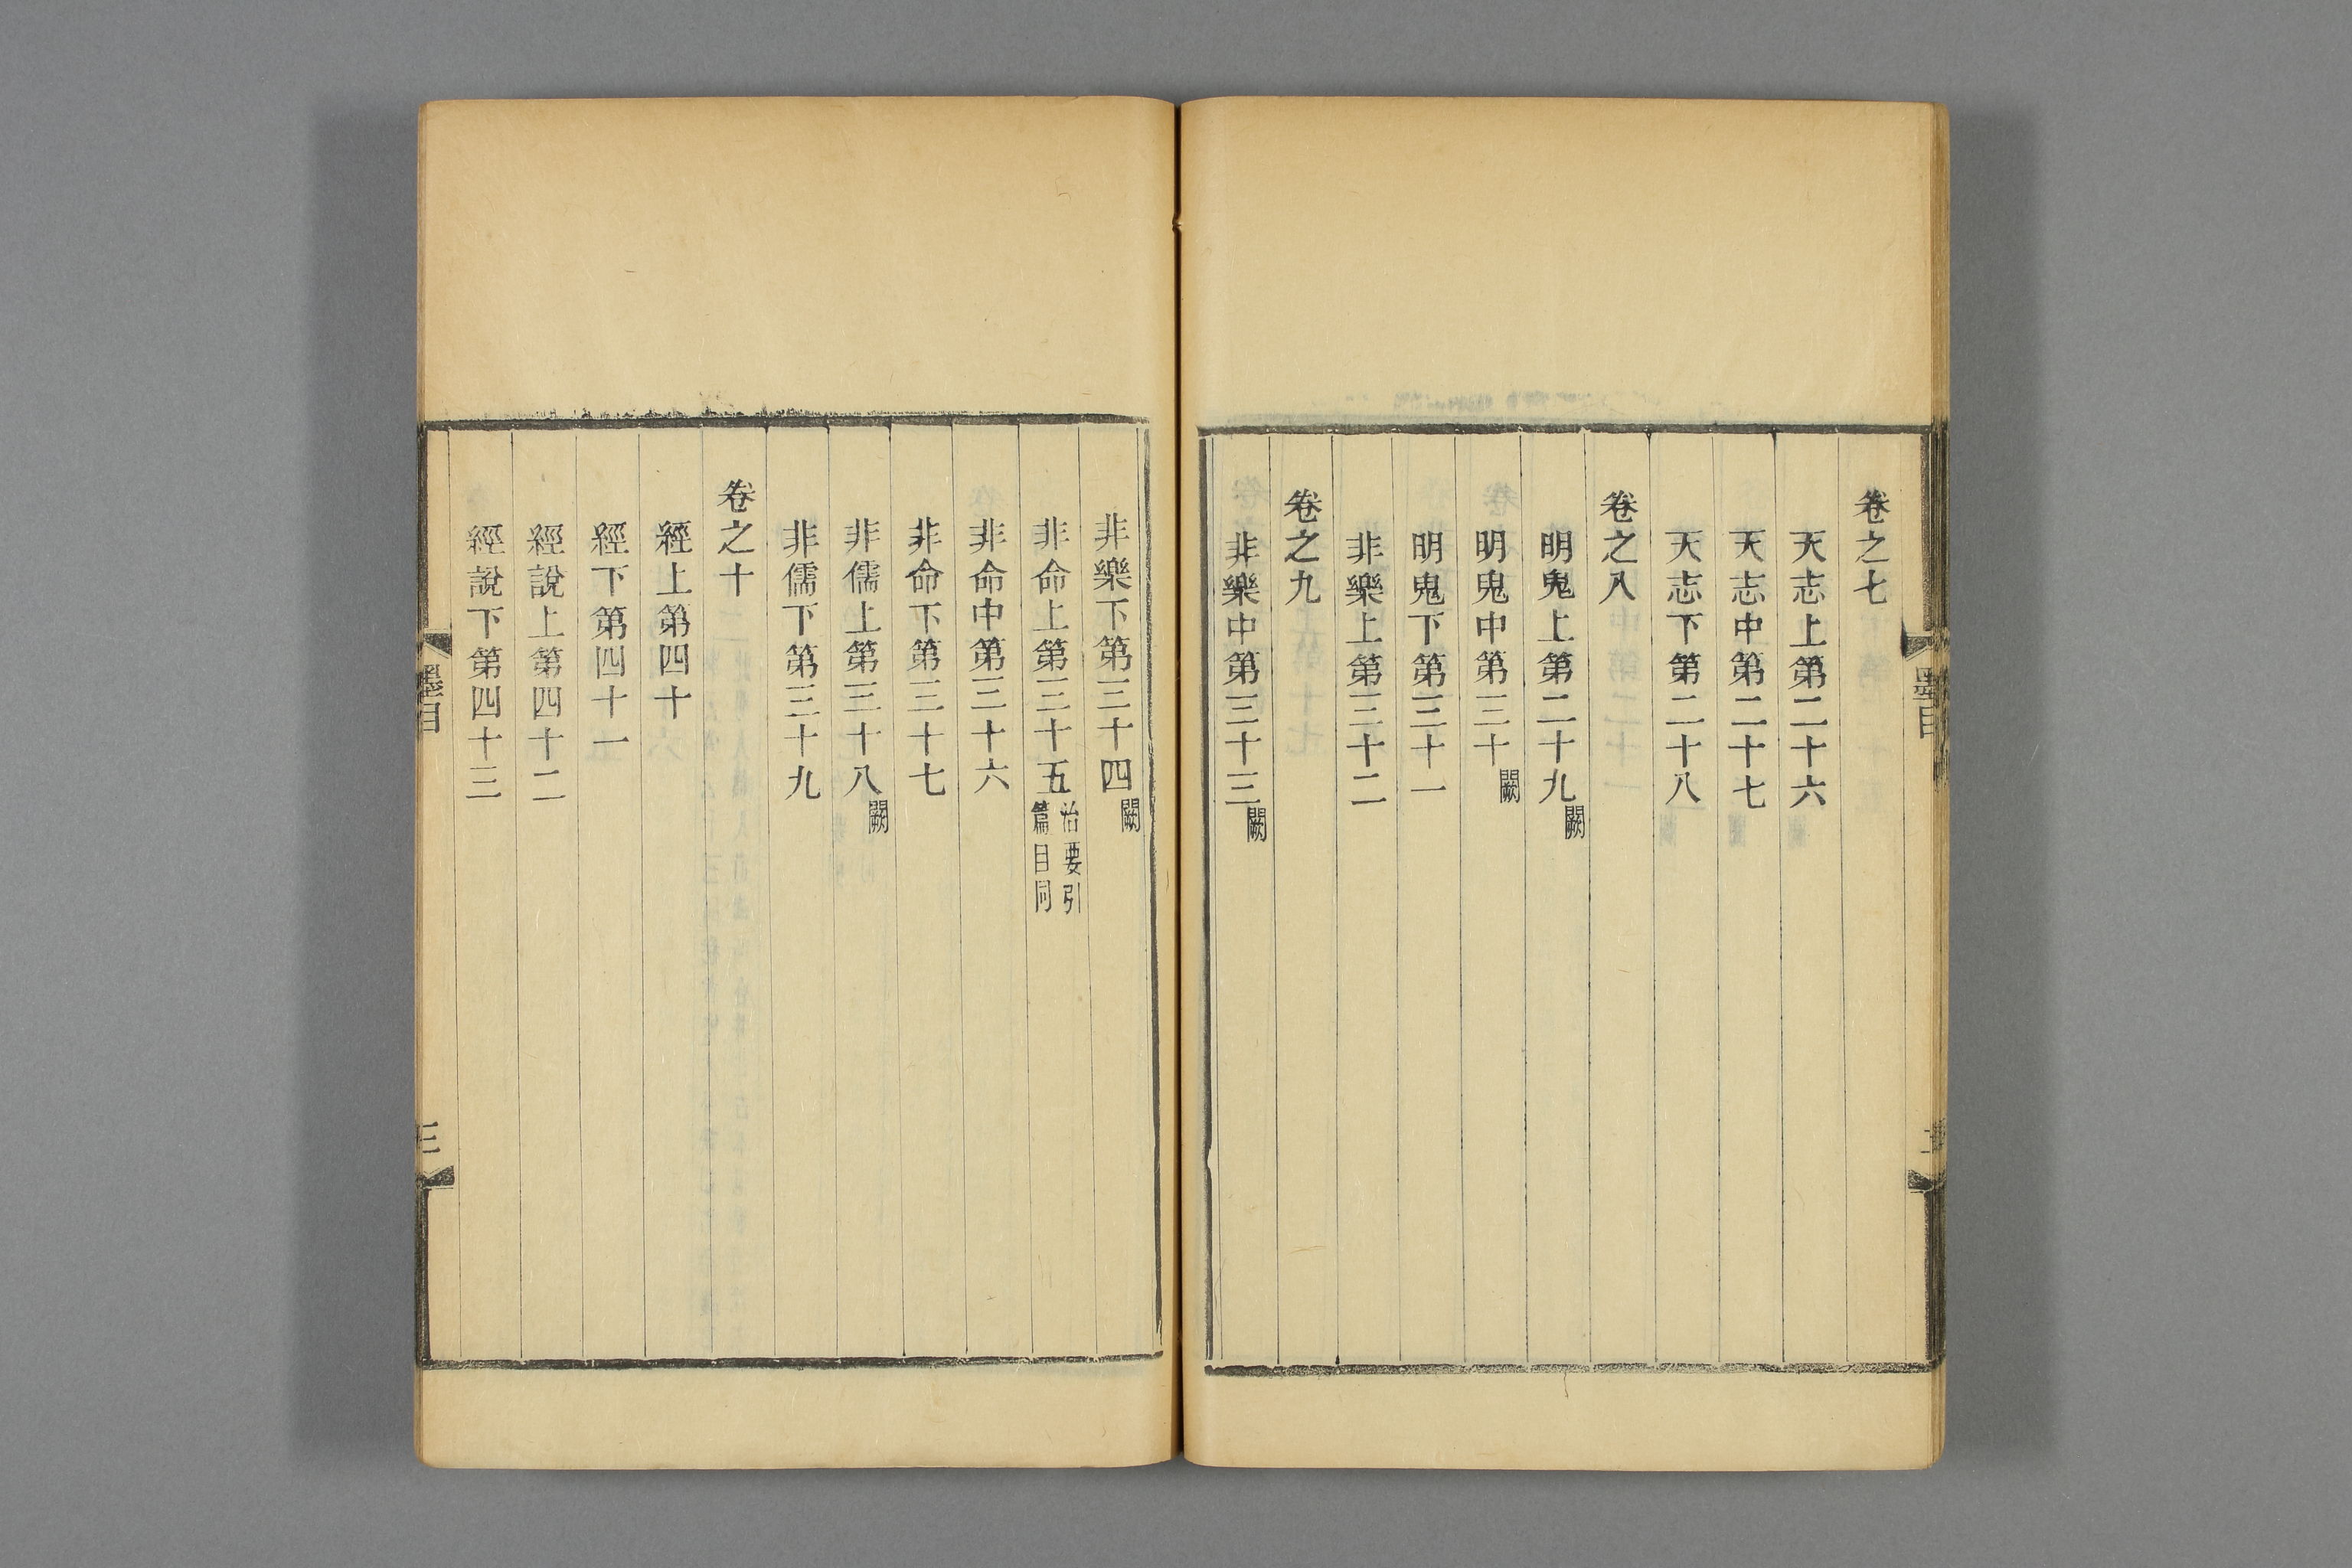 卷之七
天志上第二十六
天志中第二十七
天志下第二十八
卷之八
明鬼上第二十九闕
明鬼中第三十闕
明鬼下第三十一
非樂上第三十二
卷之九
非樂中第三十三闕
非樂下第三十四闕
非命上第三十五治要引篇目同
非命中第三十六
非命下第三十七
非儒上第三十八闕
非儒下第三十九
卷之十
經上第四十
經下第四十一
經說上第四十二
經說下第四十三
墨目
三